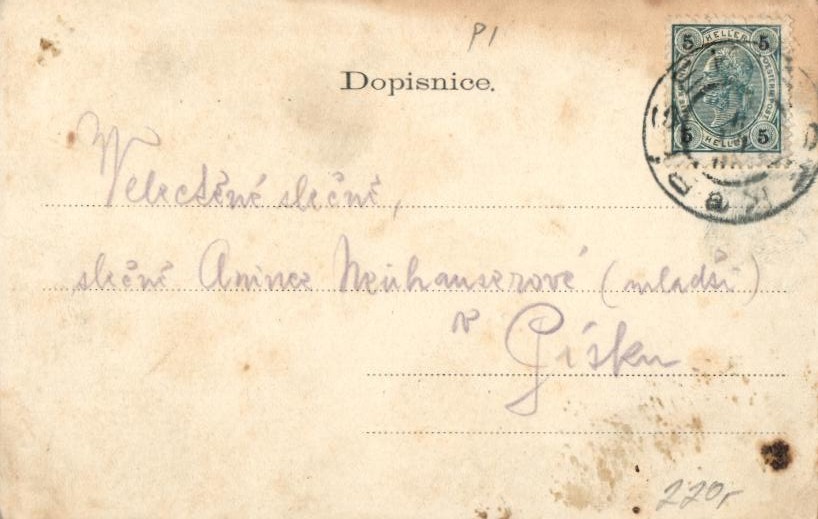 PI
Dopisnice.
5 HELLER 5
5 HELLER 5
Velectěné slečně,
slečně Anince Neuhauserové (mladší)
v Písku.
220,-